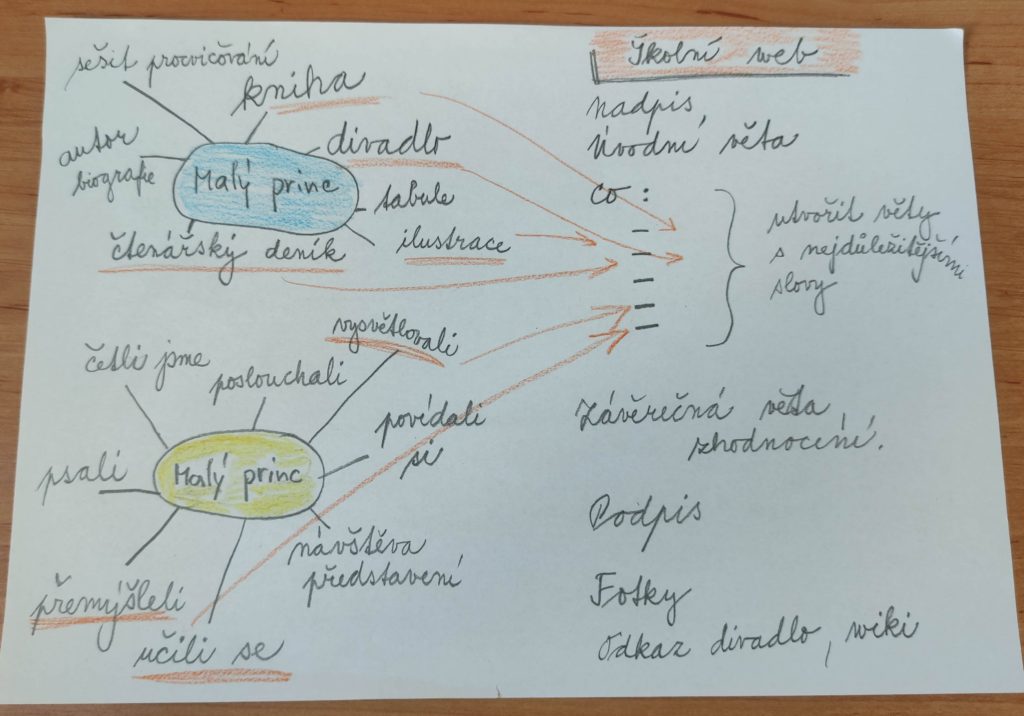 sešit procvičování
kniha
autor
biografie
Malý princ
divadlo
tabule
ilustrace
čtenářský deník
vysvětlovali
četli jsme
poslouchali
povídali
si
psali
Malý princ
návštěva
představení
přemýšleli
učili se
Školní web
Nadpis
Úvodní věta
co :
–
–
–
–
–
utvořit věty
s nejdůležitějšími
slovy
Závěrečná věta,
zhodnocení.
Podpis
Fotky
Odkaz divadlo, wiki